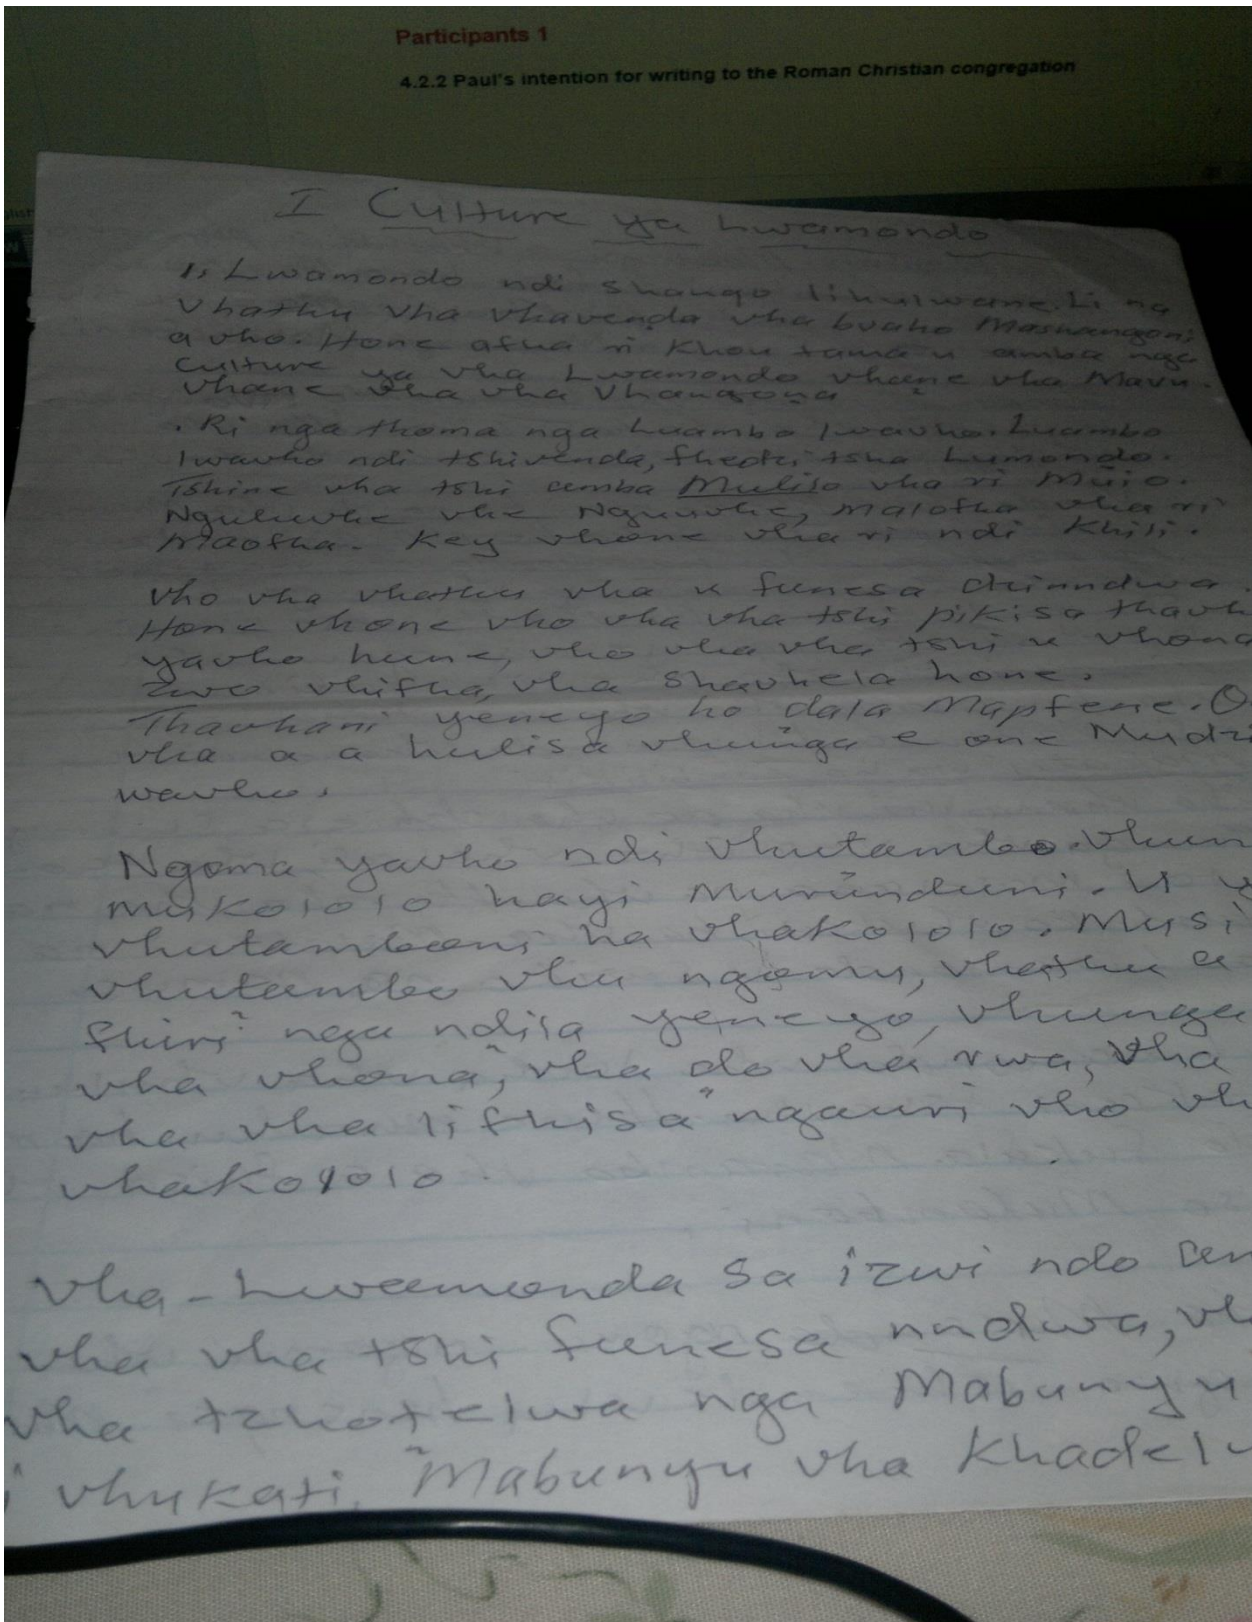 Participants 1
4.2.2 Paul's intention for writing to the Roman Christian congregation
I Culture ya Lwamondo
1, Lwamondo ndi shango lihulwane. Li na
Vhathu vha vhavenḓa vha bvaho Mashangoni
a vho. Hone afha ri khou tama u amba nga
Culture ya vha Lwamondo vhane vha Mavu.
vhane vha vha Vhangona
. Ri nga thoma nga Luambo lwavho. Luambo
lwavho ndi tshivenda, fhedzi tsha Lumondo.
Tshine vha tshi amba Muliso vha ri Muio.
Nguluvhe vha Nguuvhe, malofha vha ri
maofha. Key vhone vha ri ndi Khili.
Vho vha vhathu vha u funesa dzinndwa.
Hone vhone vho vha vha tshi pikisa thavh
yavho hune, vho vha vha tshi u vhona
zwo vhifha, vha shavhela hone.
Thavhani yeneyo ho dala Mapfene. O
vha a a hulisa vhunga e one Mudzi
wavho.
Ngoma yavho ndi vhutambo. Vhun
mukololo hayi Murunduni. U y
vhutamboni ha vhakololo. Musi
vhutambo vhu ngomu, vhathu a
fhiri nga ndila yeneyo, vhunga
vha vhona, vha do vha rwa, vha
vha vha lifhisa ngauri vho vh
vhakololo.
Vha-Lwamonda sa izwi ndo am
vha vha tshi funesa nndwa, vh
vha tzhotelwa nga Mabunyu
i vhukati. Mabunyu vha khadel